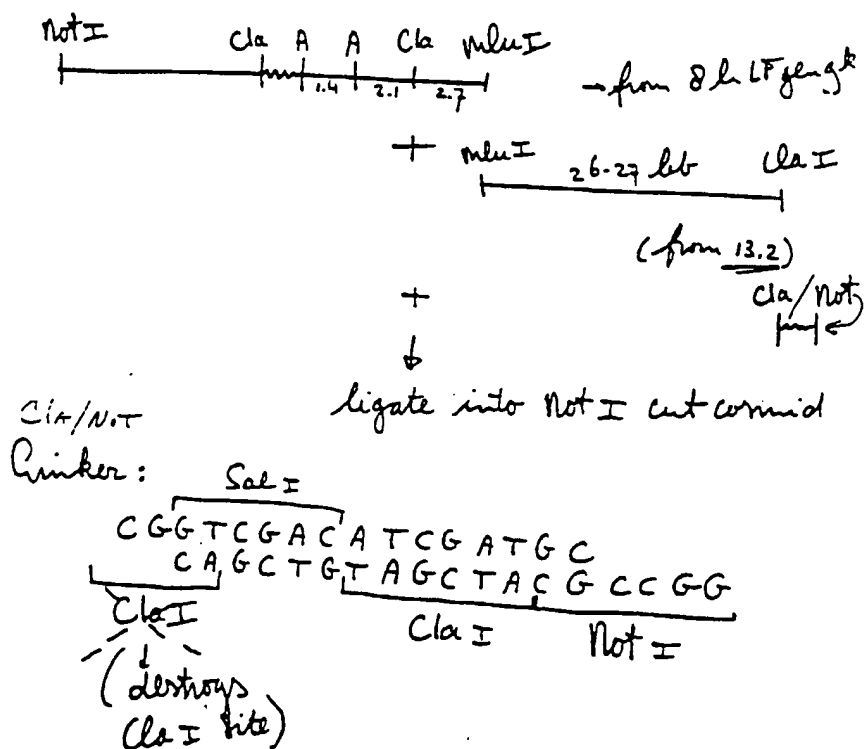 Not I Cla A A Cla mlu I
1.4 2.1 2.7
→ from 8 h LF
+
mlu I 26-27 kb Cla I
(from 13.2)
Cla/Not
+
ligate into Not I cut cosmid
Cla/Not
Linker:
Sal I
C G G T C G A C A T C G A T G C
C A G C T G T A G C T A C G C C G G
Cla I
Cla I Not I
(destroys
Cla I site)